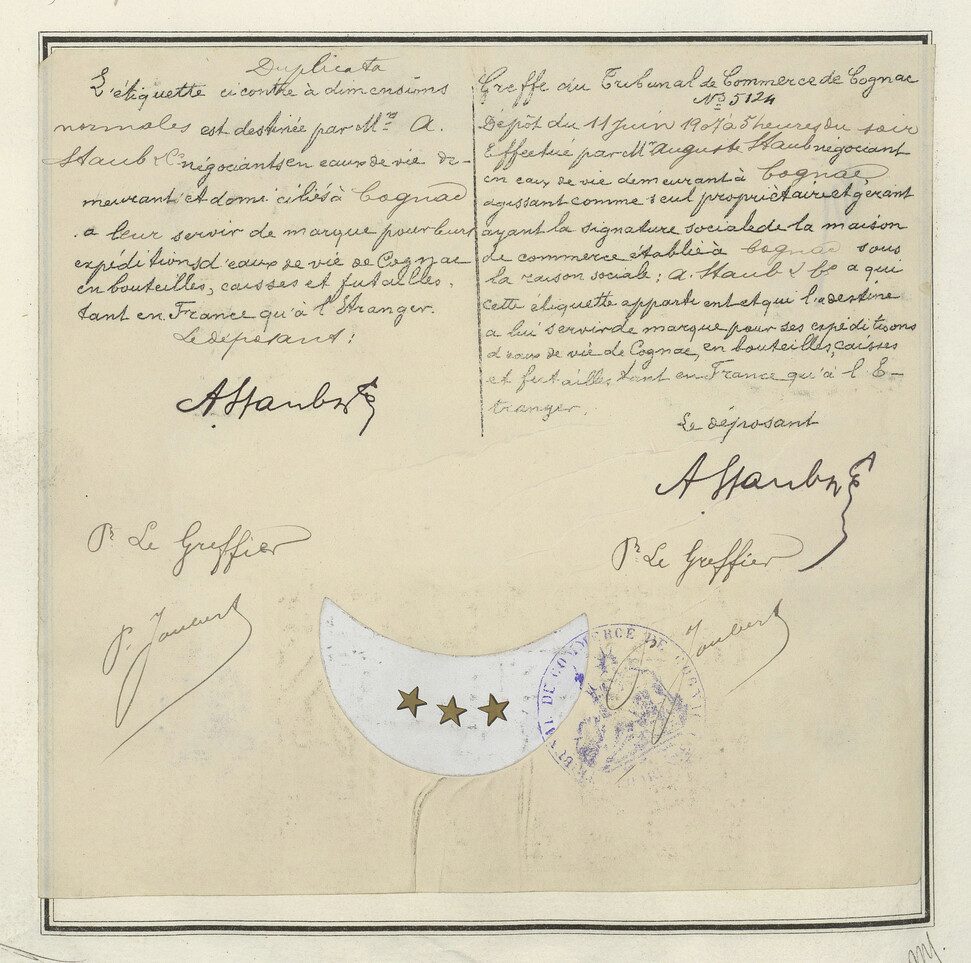 Duplicata
L'étiquette ci contre à dimensions
normales est destinée par Mrs A.
Staub & Co négociants en eaux de vie de-
meurant et domiciliés à Cognac
a leur servir de marque pour leurs
expéditions d'eaux de vie de Cognac
en bouteilles, caisses et futailles,
tant en France qu'à l'Etranger.
Le déposant:
A Staub & Co
Pr Le Greffier
P. Joubert
Greffe du Tribunal de Commerce de Cognac
No 5124
Dépôt du 11 Juin 1907 à 5 heures du soir
Effectué par Mr Auguste Staub négociant
en eaux de vie demeurant à Cognac
agissant comme seul propriétaire et gérant
ayant la signature sociale de la maison
de commerce établie à Cognac sous
la raison sociale: A. Staub & Co a qui
cette étiquette appartient et qui l'a destine
a lui servir de marque pour ses expéditions
d'eaux de vie de Cognac, en bouteilles, caisses
et futailles tant en France qu'à l'E-
tranger.
Le déposant
A Staub & Co
Pr Le Greffier
P. Joubert
TRIBUNAL DE COMMERCE DE COGNAC